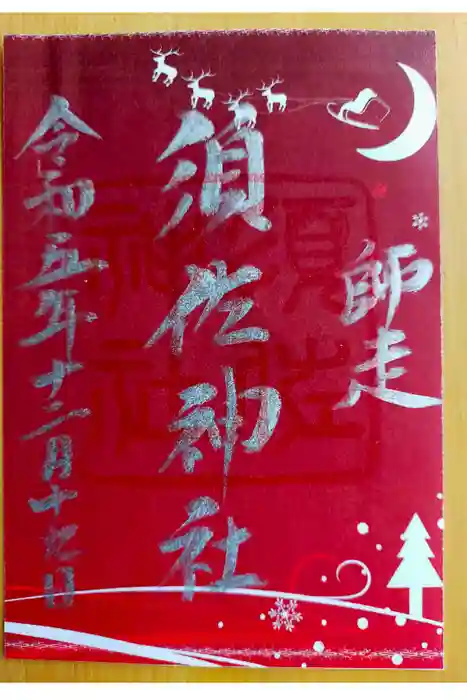 師走
須佐神社
令和五年十二月十九日